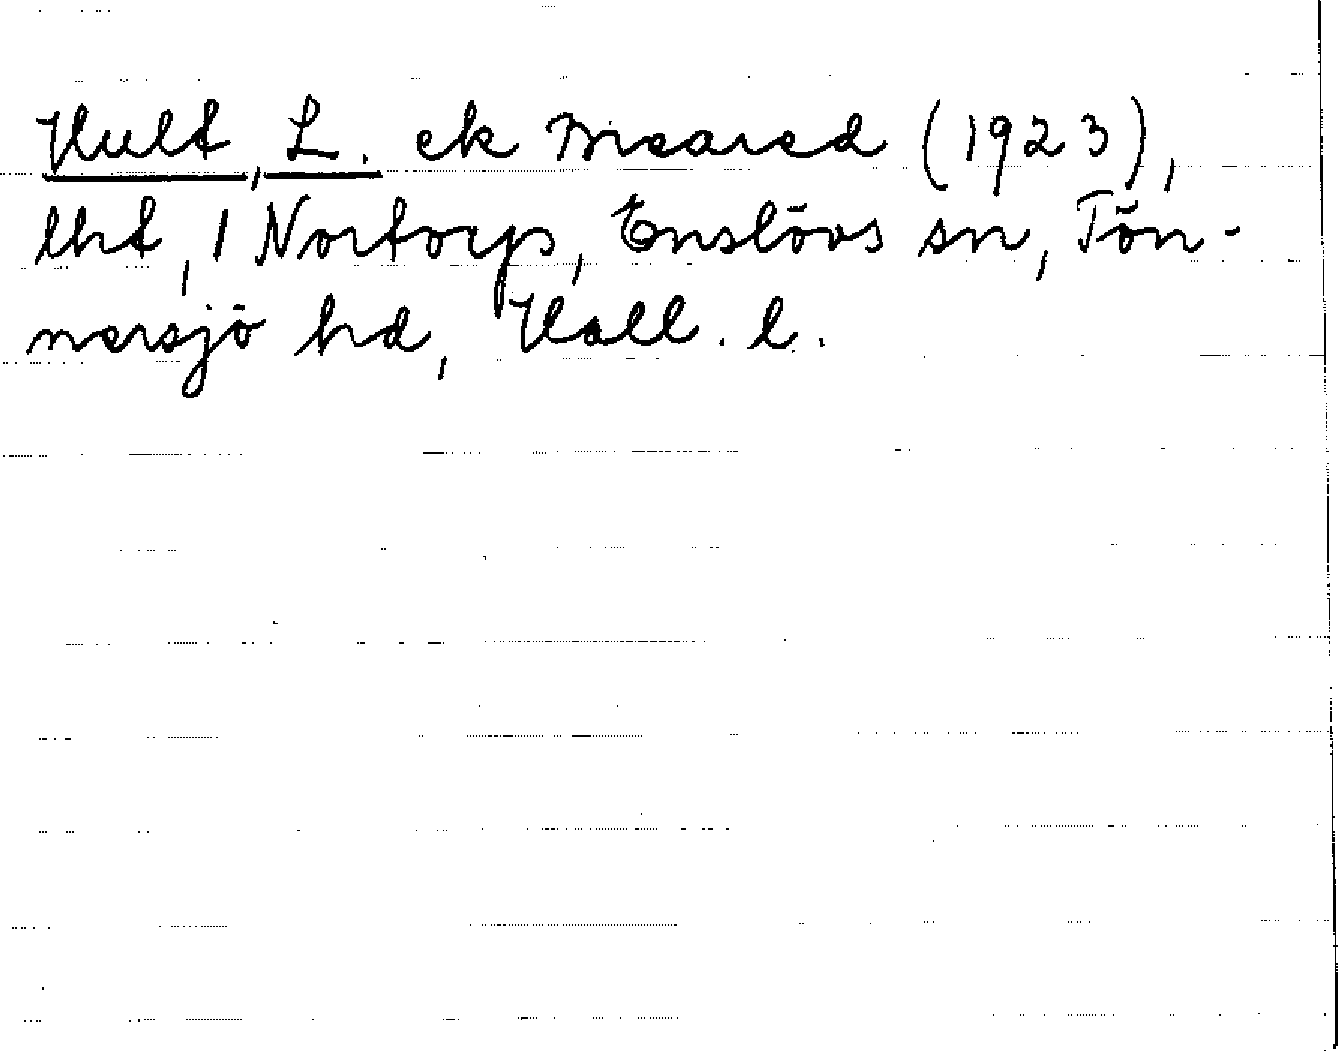 Hult, L. ek Breared (1923),
lht, 1 Nortorp, Enslövs sn, Tön-
nersjö hd, Hall. l.